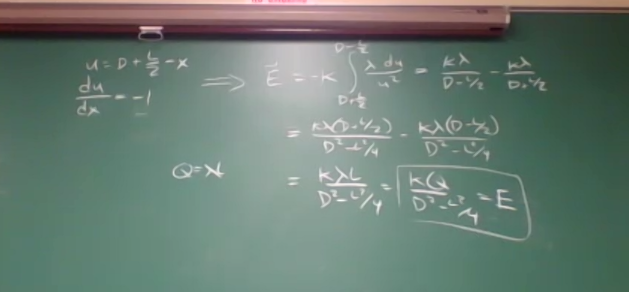 u = D + L/2 - x ⟹ E⃗ = -K ∫_{D+L/2}^{D-L/2} λ du/u² = Kλ/(D-L/2) - Kλ/(D+L/2)
du/dx = -1
= Kλ(D+L/2)/(D²-L²/4) - Kλ(D-L/2)/(D²-L²/4)
Q=λL = KλL/(D²-L²/4) = KQ/(D²-L²/4) = E